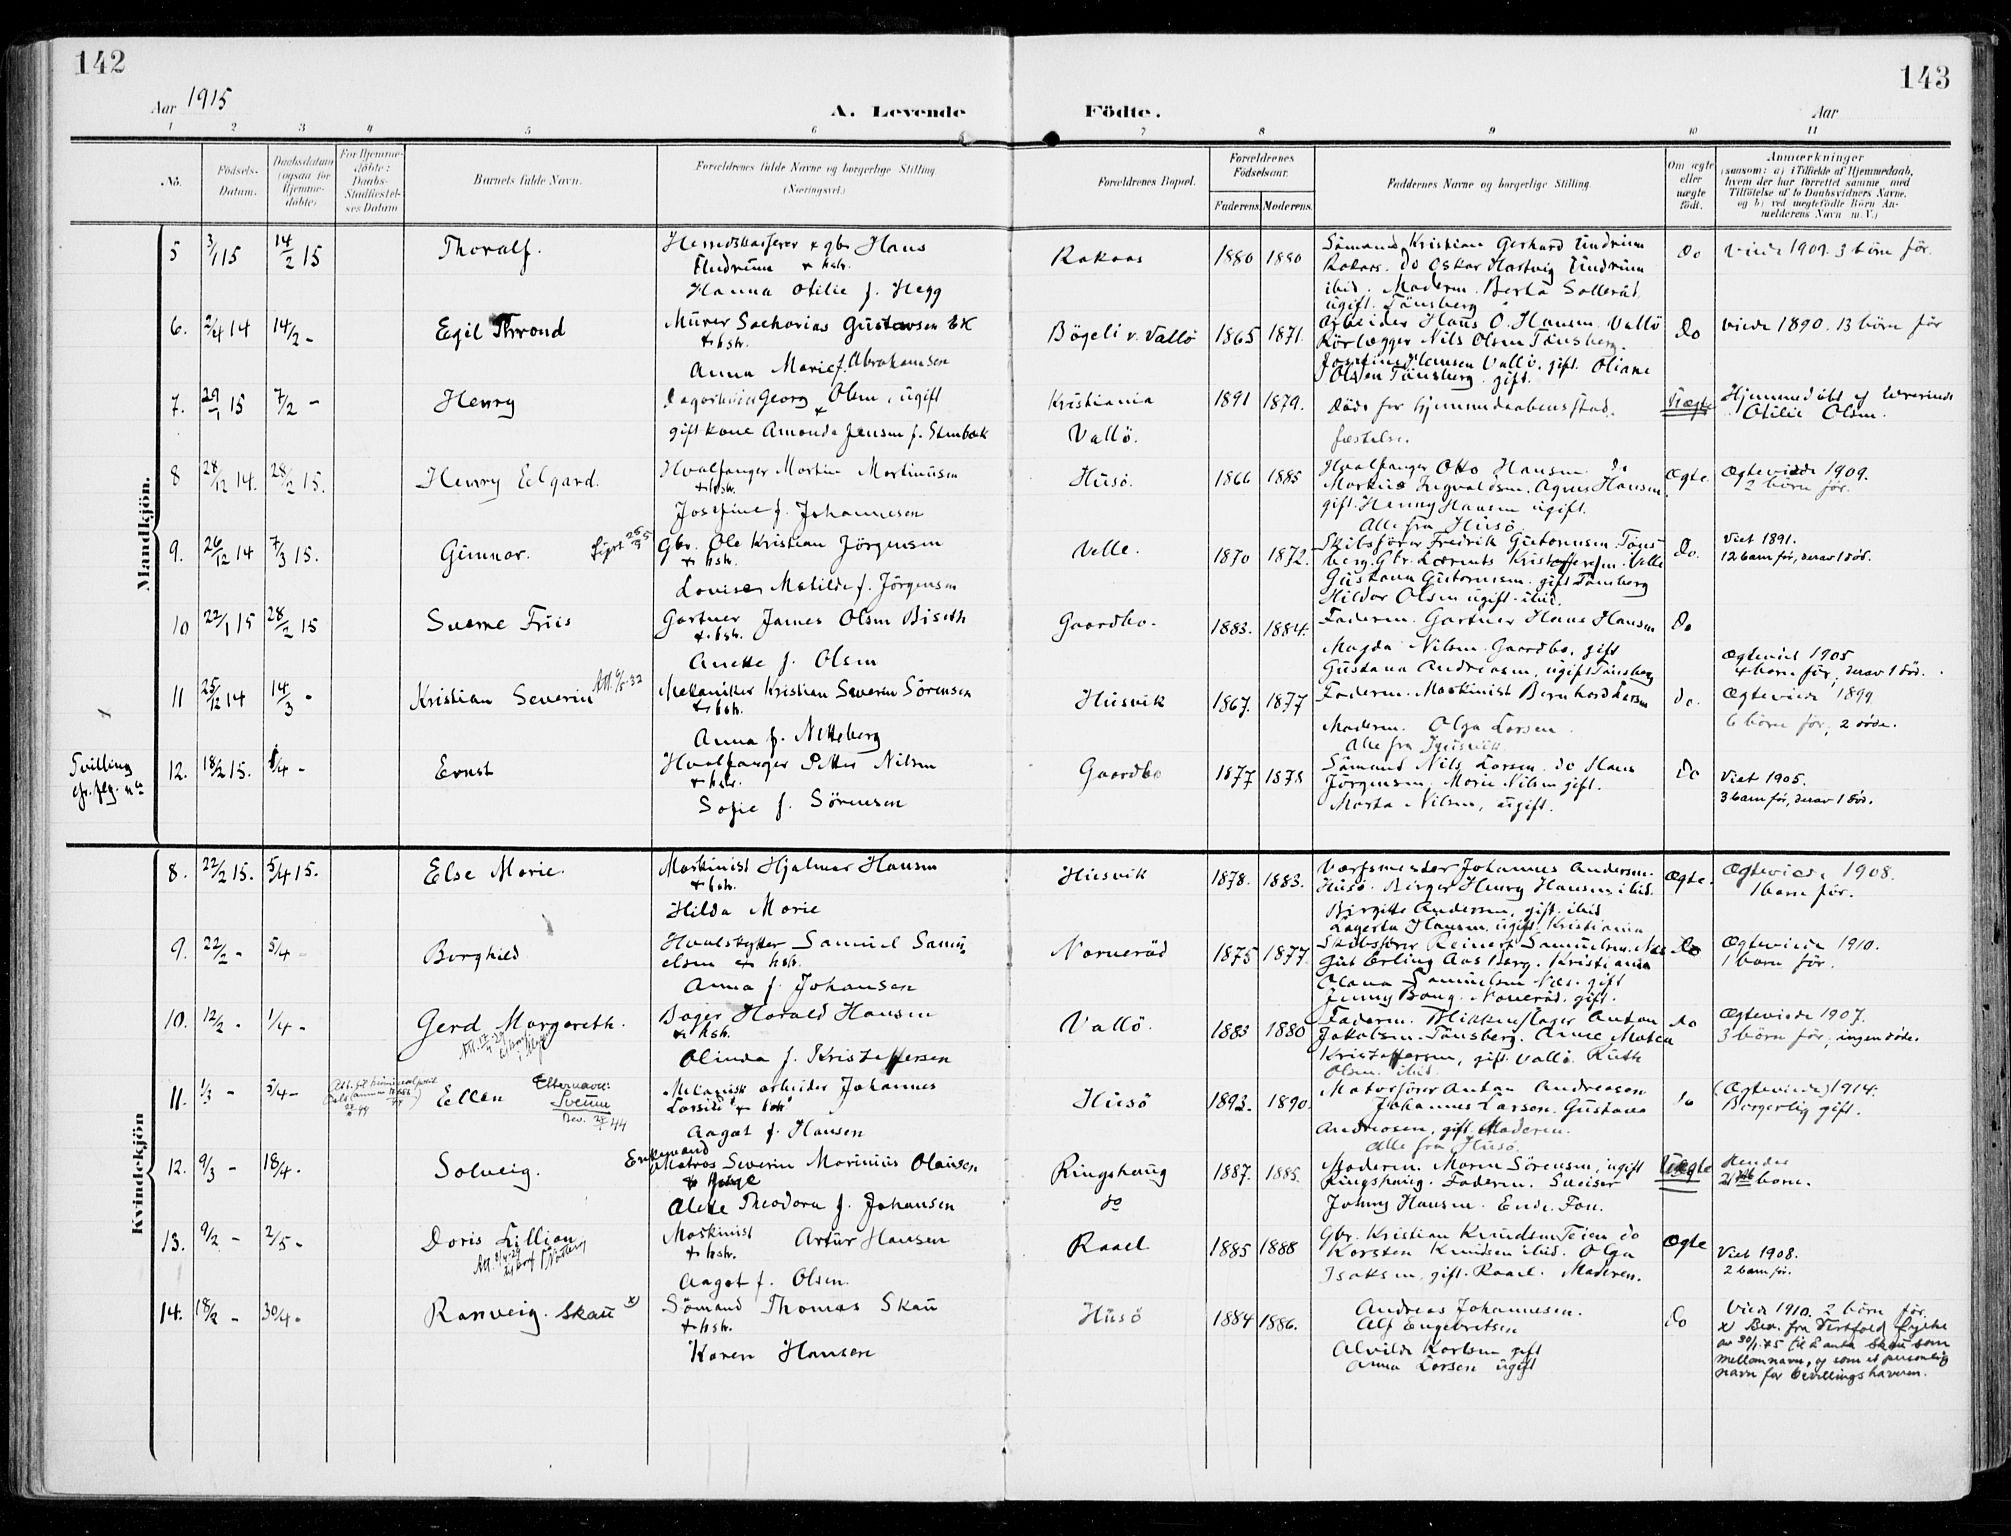 142
143
Aar 1915
A. Levende Födte.
Aar
1 2 3 4 5 6 7 8 9 10 11
No.
Födsels-Datum.
Daabsdatum (ogsaa for Hjemme-döbte)
For Hjemme-döbte: Daabs-Stadfæstel-ses Datum
Barnets fulde Navn.
Forældrenes fulde Navne og borgerlige Stilling (Næringsvei.)
Forældrenes Bopæl.
Forældrenes Födselsaar.
Faderens. Moderens.
Faddernes Navne og borgerlige Stilling.
Om ægte eller uægte födt.
Anmærkninger
(saasom: a) i Tilfælde af Hjemmedaab, hvem der har forrettet samme med Tilföielse af to Daabsvidners Navne, og b) ved uegtefödte Börn An-melderens Navn m. V.)
Mandkjön.
5 3/1 15 14/2 15 Thoralf. Herredskasserer & gbr Hans
Undrum & hstr.
Hanna Otilie f. Hegg
Rakaas 1880 1880
Sömand Kristian Gerhard Undrum
Rakaas. do Oskar Hartvig Undrum
ibid. Moderen. Berta Solleröd,
ugift. Tönsberg
do viede 1909. 3 börn för.
6. 2/4 14 14/2 - Egil Thrond Murer Sacharias Gustavsen EK
& hstr.
Anna Marie f. Abrahamsen
Bögeli v. Vallö 1865 1871.
Arbeider Hans O. Hansen Vallö
Rörlægger Nils Olsen Tönsberg.
Josefine Hansen Vallö. gift. Oliane
Olsen Tönsberg gift.
do viede 1890. 13 börn för
7. 29/1 15 7/2 - Henry Georg Olsen, ugift
&
gift kone Amanda Jensen f. Stenbæk
Kristiania
Vallö.
1891 1879.
Döde før hjemmedaabens stad-
fæstelse.
Uægte Hjemmedöbt af lærerinde
Otilie Olsen.
8 28/12 14. 28/2 15. Henry Edgard. Hvalfanger Martin Martinusen
& hstr.
Josefine f. Johannesen
Husö. 1866 1885
Hvalfanger Otto Hansen. do
Martin Ingvaldsen. Agnes Hansen
gift. Henny Hansen ugift.
Alle fra Husö.
Ægte. Ægteviede 1909.
2 börn för.
9. 26/12 14 7/3 15. Gunnar. Gbr. Ole Kristian Jörgensen
& hstr.
Lovise Matilde f. Jörgensen
Velle. 1870 1872.
Skibsförer Fredrik Gutormsen Töns-
berg. Gbr. Laurits Kristoffersen. Velle
Gustava Gutormsen. gift Tönsberg
Hildor Olsen ugift. ibid.
do. Viet 1891.
12 barn før, derav 1 död.
10 22/1 15 28/2 15 Sverre Friis Gartner James Olsen Biseth
& hstr.
Anette f. Olsen
Gaardbo. 1883. 1884.
Faderen. Gartner Hans Hansen
Magda Nilsen. Gaardbo. gift
Gustava Andreasen, ugift Tönsberg
do Ægteviet 1905
4 barn før, derav 1 död.
11 25/12 14 14/3 - Kristian Severin Att. 6/5-32 Mekaniker Kristian Severin Sörensen
& hstr.
Anna f. Nitteberg
Husvik 1867. 1877
Faderen. Maskinist Bernhard Larsen
Moderen. Olga Larsen.
Alle fra Husvik.
do. Ægteviede 1899
6 börn för, 2 döde.
Tvilling
12. 18/2 15. 1/4 - Ernst Hvalfanger Petter Nilsen
& hstr.
Sofie f. Sörensen
Gaardbo 1877 1878
Sömand Nils Larsen. do Hans
Jörgensen, Marie Nilsen gift.
Marta Nilsen, ugift.
do Viet 1905.
3 barn før, derav 1 död.
Kvindekjön
8. 22/2 15. 5/4 15. Else Marie. Maskinist Hjalmar Hansen
& hstr.
Hilda Marie
Husvik 1878. 1883.
Værfsmester Johannes Andersen.
Husö. Birger Henry Hansen ibid.
Birgitte Andersen, gift. ibid
Lagerta Hansen, ugift. Kristiania
Ægte. Ægteviede 1908.
1 barn för.
9. 22/2 - 5/4 - Borghild Hvalskytter Samuel Samu-
elsen & hstr.
Anna f. Johansen
Narveröd 1875 1877.
Skibsförer Reinert Samuelsen. Næs
Gut Erling Aasberg. Kristiania
Olava Samuelsen Næs. gift
Jenny Bang. Naveröd. gift.
do Ægteviede 1910.
1 barn för.
10. 12/2 - 1/4 - Gerd Margareth. Bager Harald Hansen
& hstr.
Olinda f. Kristoffersen
Vallö. 1883 1880
Faderen. Blikkenslager Anton
Jakobsen. Tönsberg. Anne Matea
Kristoffersen, gift. Vallö. Ruth
Olsen. ibid.
do Ægteviede 1907.
3 börn för, ingen döde.
11. 1/3 - 5/4 - Ellen Efternavn:
Sveum
Bev. 44
Mekanisk arbeider Johannes
& hstr
Aagot f. Hansen
Husö 1892. 1890.
Motorförer Anton Andreasen
Johannes Larsen. Gustava
Andreasen, gift. Moderen.
Alle fra Husö.
do (Ægteviede) 1914.
Borgerlig gift.
12. 9/3 - 18/4. Solveig. Enkemand
Matros Severin Marinius Olausen
& Pige
Alette Theodora f. Johansen
Ringshaug
do
1887. 1885.
Moderen. Maren Sörensen, ugift
Ringshaug. Faderen. Sveiser
Johnny Hansen. Ende. Fon.
Uægte Hendes
2det barn.
13. 9/2 - 2/5 - Doris Lillian Maskinist Artur Hansen
& hstr.
Aagot f. Olsen.
Raael 1885 1888
Gbr. Kristian Knudsen Teien do
Karsten Knudsen ibid. Olga
Isaksen, gift. Raael. Moderen.
Ægte Viet 1908.
2 barn før.
14. 18/2 - 30/4 - Ranveig. Skau x) Sömand Thomas Skau
& hstr.
Karen Hansen
Husö 1884 1886.
Andreas Johannesen.
Alf Engebretsen
Alvilde Karlsen gift
Anna Larsen ugift
do Viede 1910. 2 börn för.
x) Bev. fra Vestfold fylke
av 30/1.45 til å anta Skau som
mellomnavn, og som et personlig
navn for bevillingshaveren.